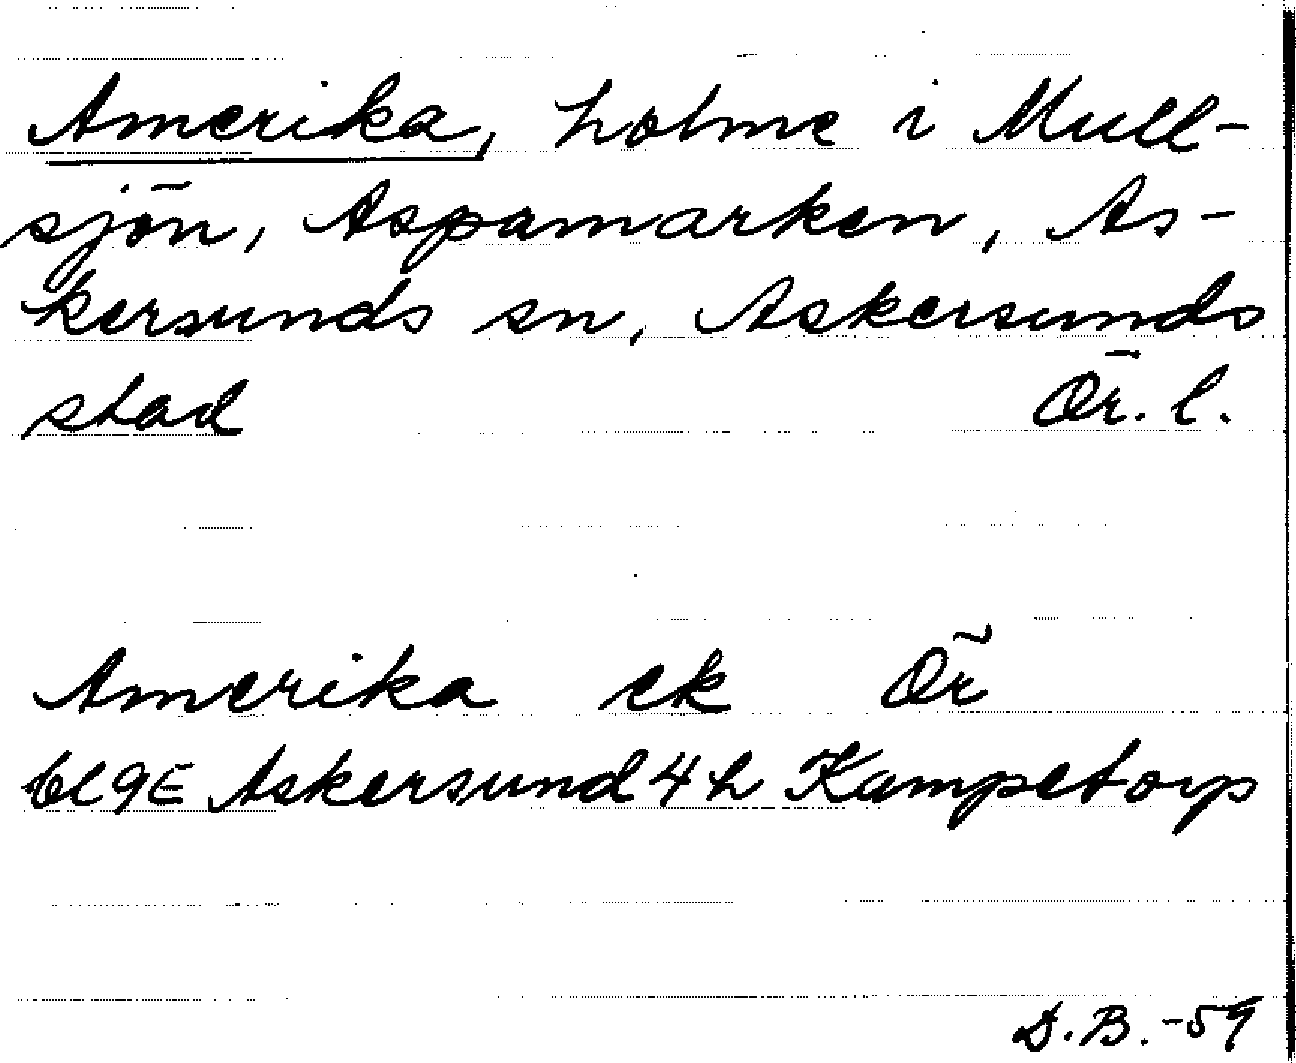 Amerika, holme i Mull-
sjön, Aspamarken, As-
kersunds sn, Askersunds
stad Ör. l.
Amerika ek Ör
9E Askersund 4 h Kampetorp
D.B. -59